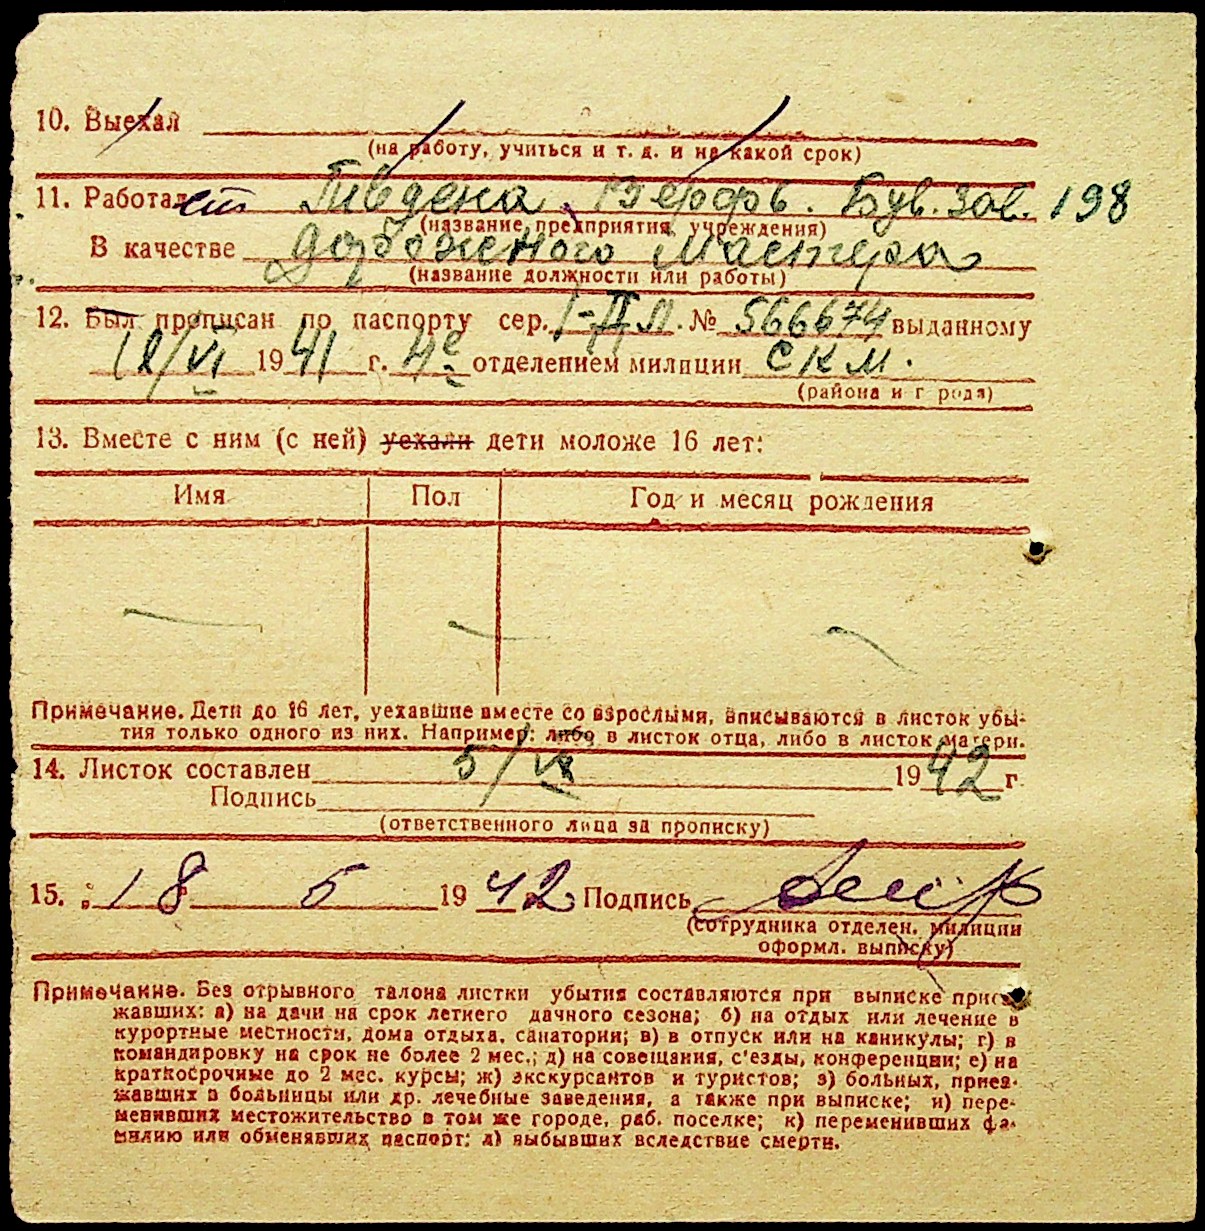 10. Выехал
(на работу, учиться и т. д. и на какой срок)
11. Работает Пивдена Верфь. Буд. зав. 198
(название предприятия, учреждения)
В качестве мастера
(название должности или работы)
12. Был прописан по паспорту сер. I-ДЛ. № 566674 выданному
18/VI 1941 г. 4е отделением милиции СКМ.
(района и г рода)
13. Вместе с ним (с ней) уехали дети моложе 16 лет:
Имя Пол Год и месяц рождения
Примечание. Дети до 16 лет, уехавшие вместе со взрослыми, вписываются в листок убы-
тия только одного из них. Например: либо в листок отца, либо в листок матери.
14. Листок составлен 5/VI 1942 г.
Подпись
(ответственного лица за прописку)
15. 18 5 1942 Подпись
(сотрудника отделен. милиции
оформл. выписку)
Примечание. Без отрывного талона листки убытия составляются при выписке приез-
жавших: а) на дачи на срок летнего дачного сезона; б) на отдых или лечение в
курортные местности, дома отдыха, санатории; в) в отпуск или на каникулы; г) в
командировку на срок не более 2 мес.; д) на совещания, с'езды, конференции; е) на
краткосрочные до 2 мес. курсы; ж) экскурсантов и туристов; з) больных, приез-
жавших в больницы или др. лечебные заведения, а также при выписке; и) пере-
менивших местожительство в том же городе, раб. поселке; к) переменивших фа-
милию или обменявших паспорт; л) выбывших вследствие смерти.